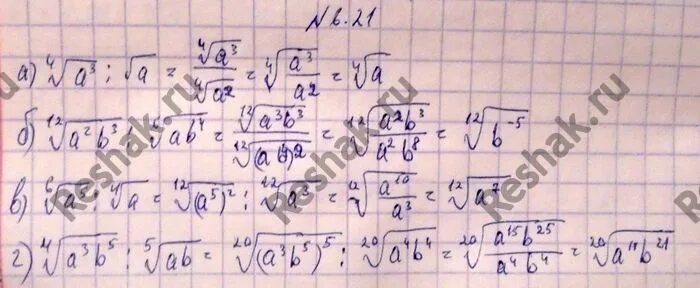 N 6.21
а) ⁴√a³ : √a = ⁴√a³ / ⁴√a² = ⁴√(a³/a²) = ⁴√a
б) ¹²√(a²b³) : ⁶√(ab⁴) = ¹²√(a³b³) / ¹²√(ab⁴)² = ¹²√(a²b³ / a²b⁸) = ¹²√b⁻⁵
в) ⁶√a⁵ : ⁴√a = ¹²√(a⁵)² : ¹²√a³ = ¹²√(a¹⁰/a³) = ¹²√a⁷
г) ⁴√(a³b⁵) : ⁵√(ab) = ²⁰√(a³b⁵)⁵ : ²⁰√(a⁴b⁴) = ²⁰√(a¹⁵b²⁵ / a⁴b⁴) = ²⁰√(a¹¹b²¹)
Reshak.ru
Reshak.ru
Reshak.ru